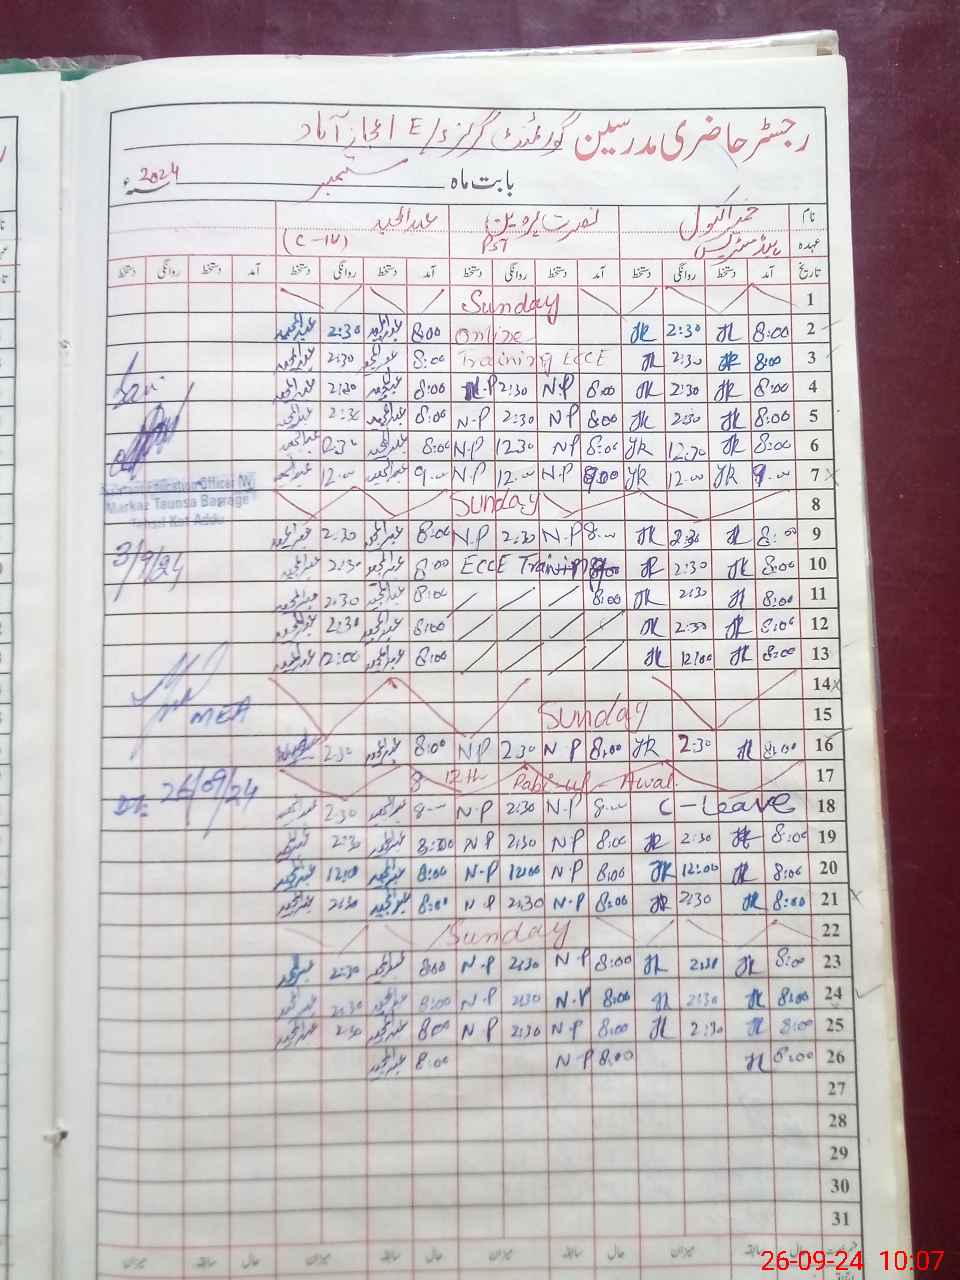 رجسٹر حاضری مدرسین گورنمنٹ گرلز E/ اعجاز آباد
بابت ماہ ستمبر 2024ء
نام نصرت پروین عبدالمجید
عہدہ ہیڈ مسٹریس PST (C-IV)
تاریخ آمد دستخط روانگی دستخط آمد دستخط روانگی دستخط آمد دستخط روانگی دستخط آمد روانگی دستخط
1 Sunday
2 8:00 JK 2:30 JK Online 8:00 عبدالمجید 2:30 عبدالمجید
3 8:00 JK 2:30 JK Training ECCE 8:00 عبدالمجید 2:30 عبدالمجید
4 8:00 JK 2:30 JK 8:00 N.P 2:30 N.P 8:00 عبدالمجید 2:30 عبدالمجید
5 8:00 JK 2:30 JK 8:00 N.P 2:30 N.P 8:00 عبدالمجید 2:30 عبدالمجید
6 8:00 JK 12:30 JK 8:00 N.P 12:30 N.P 8:00 عبدالمجید 12:30 عبدالمجید
7 9:00 JK 12:00 JK 9:00 N.P 12:00 N.P 9:00 عبدالمجید 12:00 عبدالمجید
8 Sunday
9 8:00 JK 2:30 JK 8:00 N.P 2:30 N.P 8:00 عبدالمجید 2:30 عبدالمجید
10 8:00 JK 2:30 JK ECCE Training 8:00 عبدالمجید 2:30 عبدالمجید
11 8:00 JK 2:30 JK 8:00 8:00 عبدالمجید 2:30 عبدالمجید
12 8:00 JK 2:30 JK 8:00 عبدالمجید 2:30 عبدالمجید
13 8:00 JK 12:00 JK 8:00 عبدالمجید 12:00 عبدالمجید
14
15 Sunday
16 8:00 JK 2:30 JK 8:00 N.P 2:30 N.P 8:00 عبدالمجید 2:30 عبدالمجید
17 12th Rabi-ul-Awal
18 C-Leave 8:00 N.P 2:30 N.P 8:00 عبدالمجید 2:30 عبدالمجید
19 8:00 JK 2:30 JK 8:00 N.P 2:30 N.P 8:00 عبدالمجید 2:30 عبدالمجید
20 8:00 JK 12:00 JK 8:00 N.P 12:00 N.P 8:00 عبدالمجید 12:00 عبدالمجید
21 8:00 JK 2:30 JK 8:00 N.P 2:30 N.P 8:00 عبدالمجید 2:30 عبدالمجید
22 Sunday
23 8:00 JK 2:30 JK 8:00 N.P 2:30 N.P 8:00 عبدالمجید 2:30 عبدالمجید
24 8:00 JK 2:30 JK 8:00 N.P 2:30 N.P 8:00 عبدالمجید 2:30 عبدالمجید
25 8:00 JK 2:30 JK 8:00 N.P 2:30 N.P 8:00 عبدالمجید 2:30 عبدالمجید
26 8:00 JK 8:00 N.P 8:00 عبدالمجید
27
28
29
30
31
حال سابقہ میزان حال سابقہ میزان حال سابقہ میزان حال سابقہ میزان
Education Officer (W)
Markaz Taunsa Barrage
Tehsil Kot Addu
3/9/24
MEA
Dt: 26/09/24
26-09-24 10:07